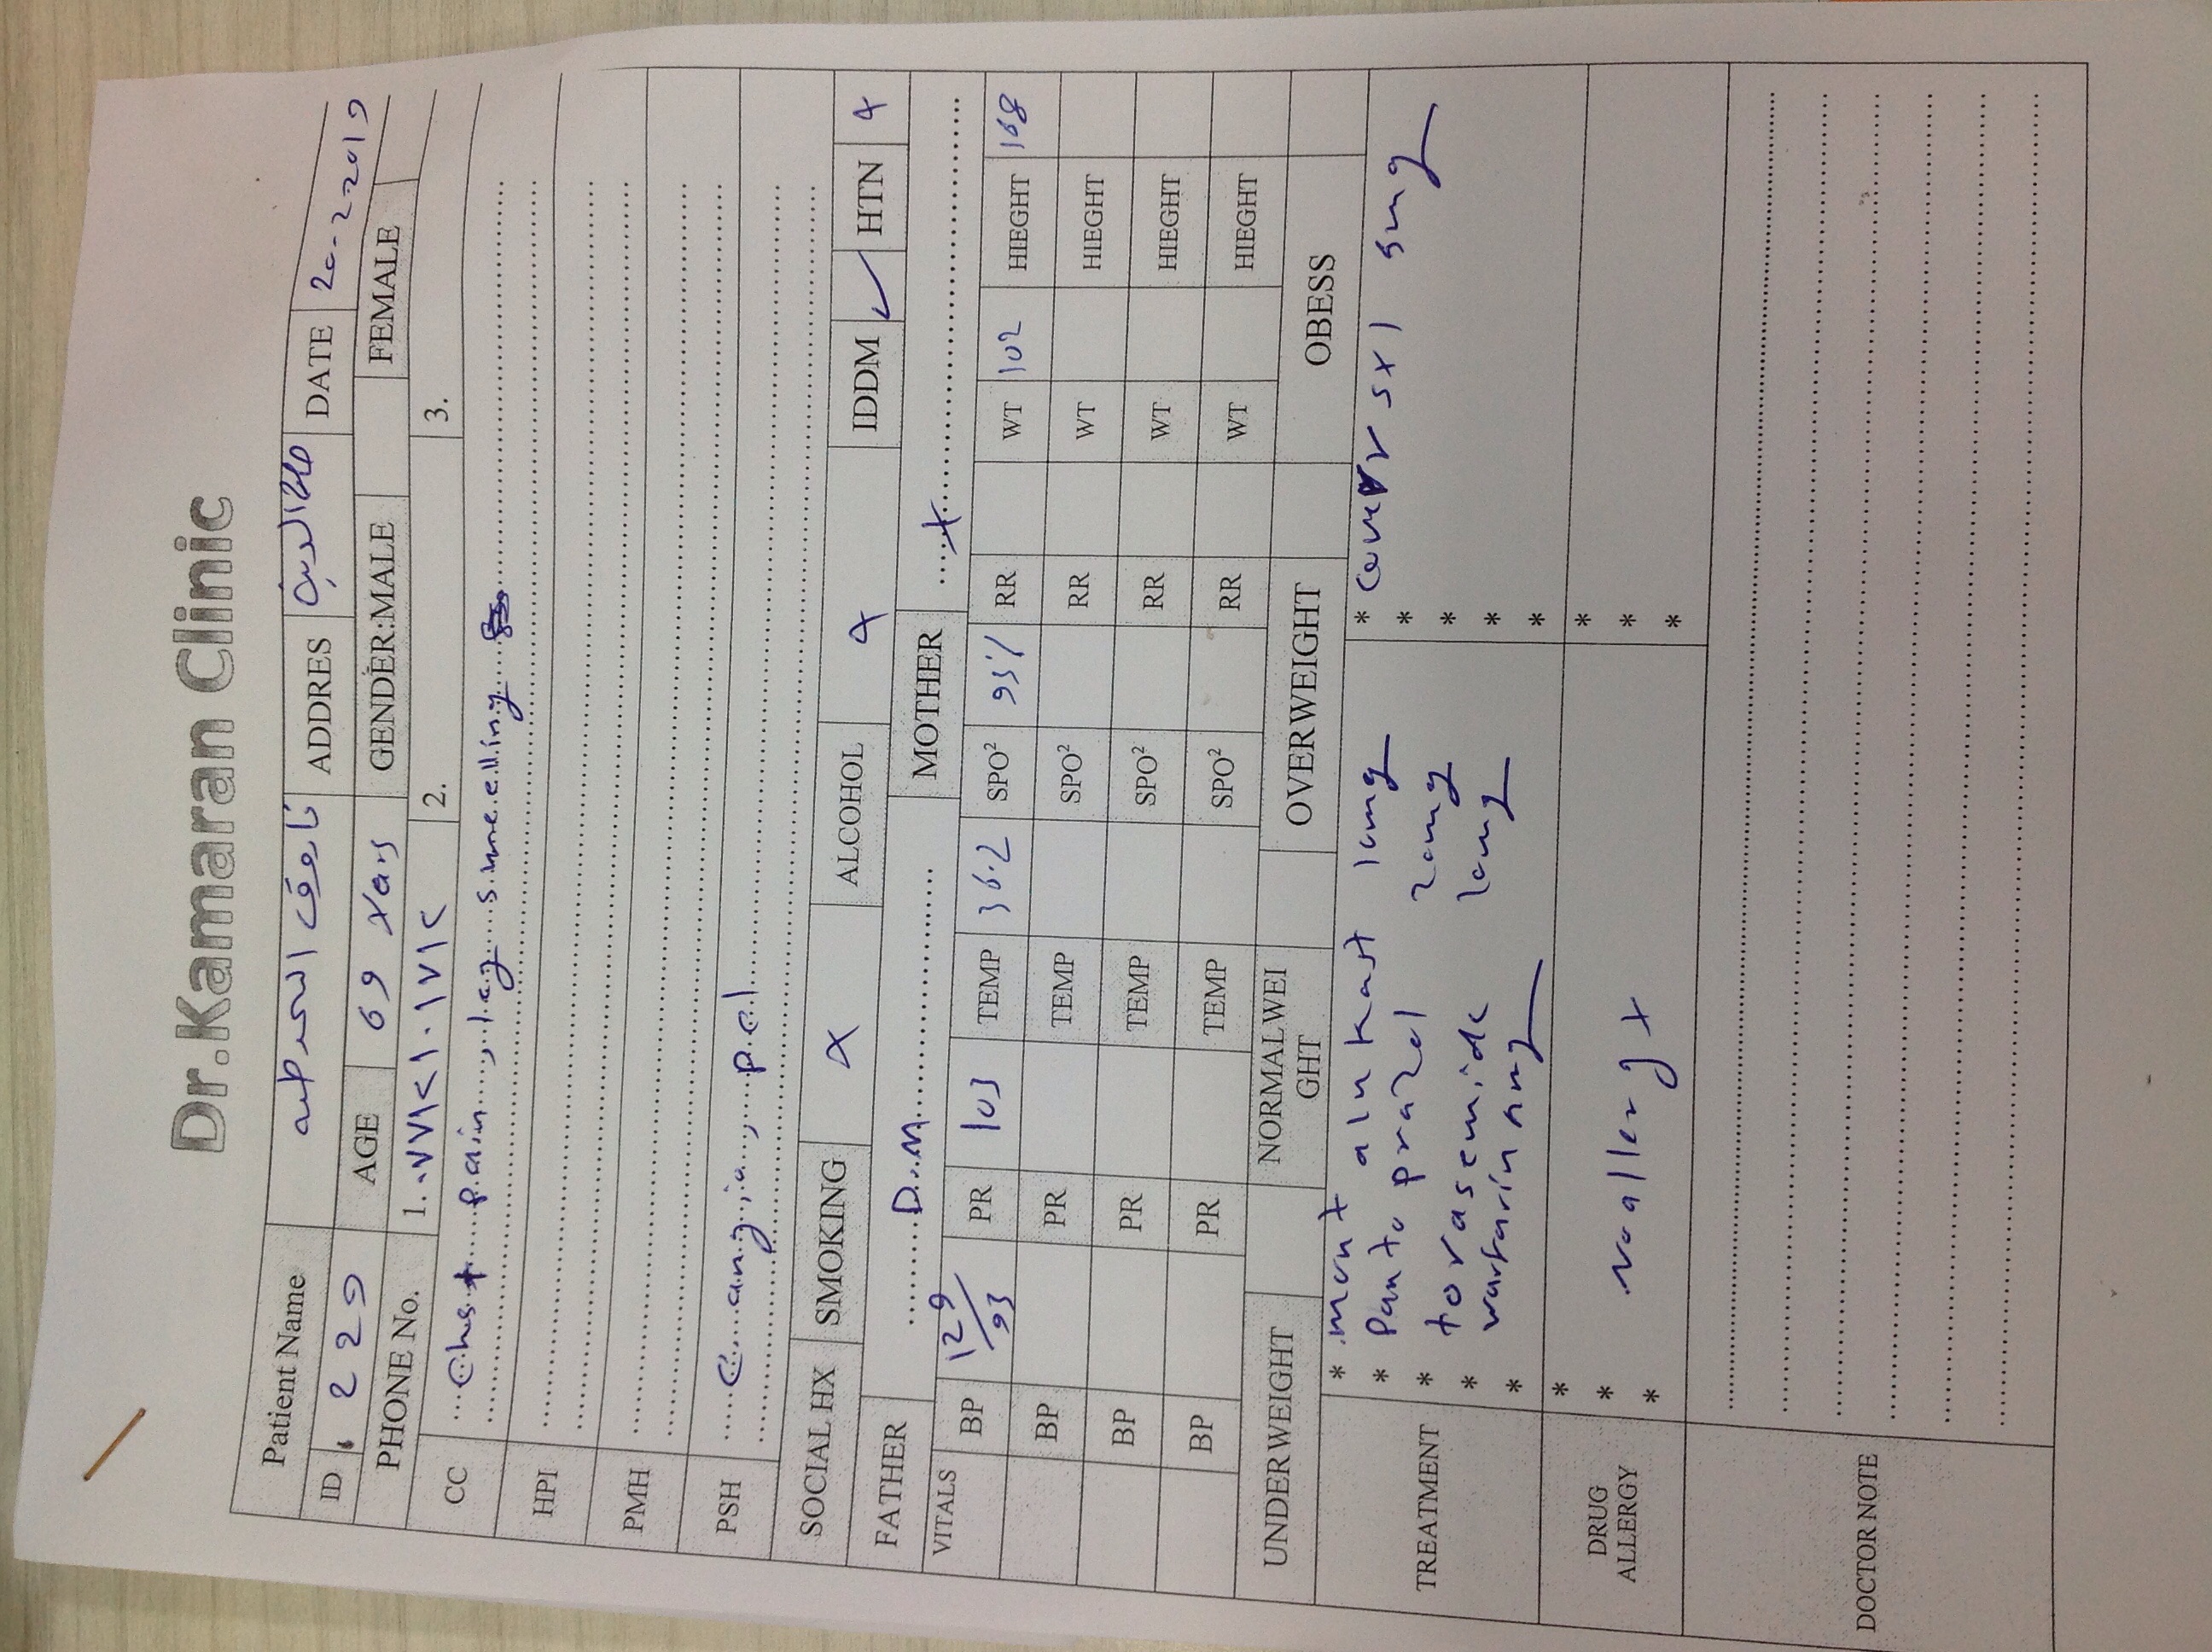 Dr.Kamaran Clinic
Patient Name فاروق ADDRES صلاح الدين DATE 20-2-2019
ID 1229 AGE 69 Yers GENDER:MALE FEMALE
PHONE No. 1. ٠٧٧١٢١٠١٧١٢ 2. 3.
CC Chest pain, leg sweelling
HPI
PMH
PSH C. angio, pcl
SOCIAL HX SMOKING x ALCOHOL x IDDM ✓ HTN x
FATHER D.M MOTHER x
VITALS BP 129/93 PR 103 TEMP 36.2 SPO² 93% RR WT 102 HIEGHT 168
BP PR TEMP SPO² RR WT HIEGHT
BP PR TEMP SPO² RR WT HIEGHT
BP PR TEMP SPO² RR WT HIEGHT
UNDERWEIGHT NORMAL WEIGHT OVERWEIGHT OBESS
TREATMENT
* mont alu kast 10mg
* Panto prazol 20mg
* torasemide 10mg
* warfarin mg
*
* 5x1 5mg
*
*
*
*
DRUG ALLERGY
* no allergy x
*
*
*
*
*
DOCTOR NOTE